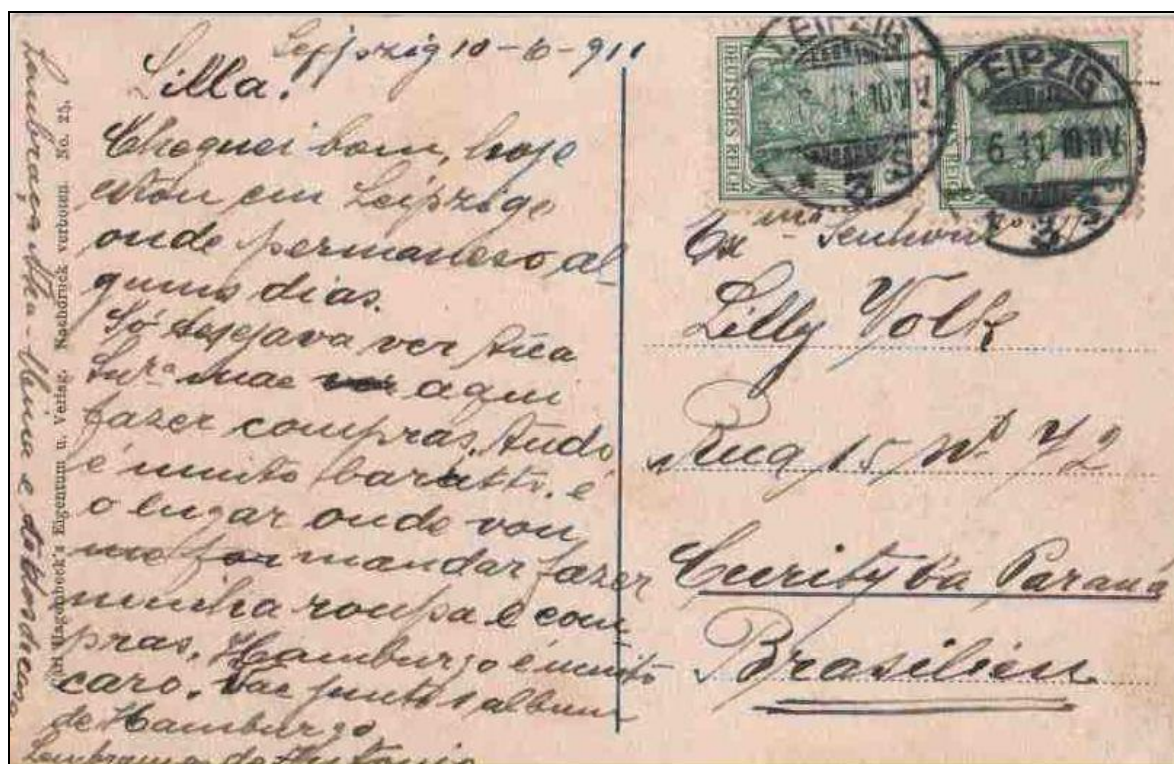 Leipzig 10-6-911
Lilla.
Cheguei bom, hoje
estou em Leipzige
onde permaneso al-
guns dias.
Só desejava ver tua
Snrª mae aqui
fazer compras, tudo
é muito baratto. é
o lugar onde vou
me mandar fazer
minha roupa e com-
pras. Hamburgo é muito
caro. Vae junto 1 album
de Hamburgo
Lembranças do Antonio
Lembrança e todos de casa
Carl Hagenbeck's Eigentum u. Verlag. Nachdruck verboten. No. 25.
DEUTSCHES REICH
LEIPZIG
11.10-11V.
3
LEIPZIG
6.11.10-11V.
3
Exmª Senhora
Lilly Volk
Rua 15 Nº 72
Curityba Paraná
Brasilien